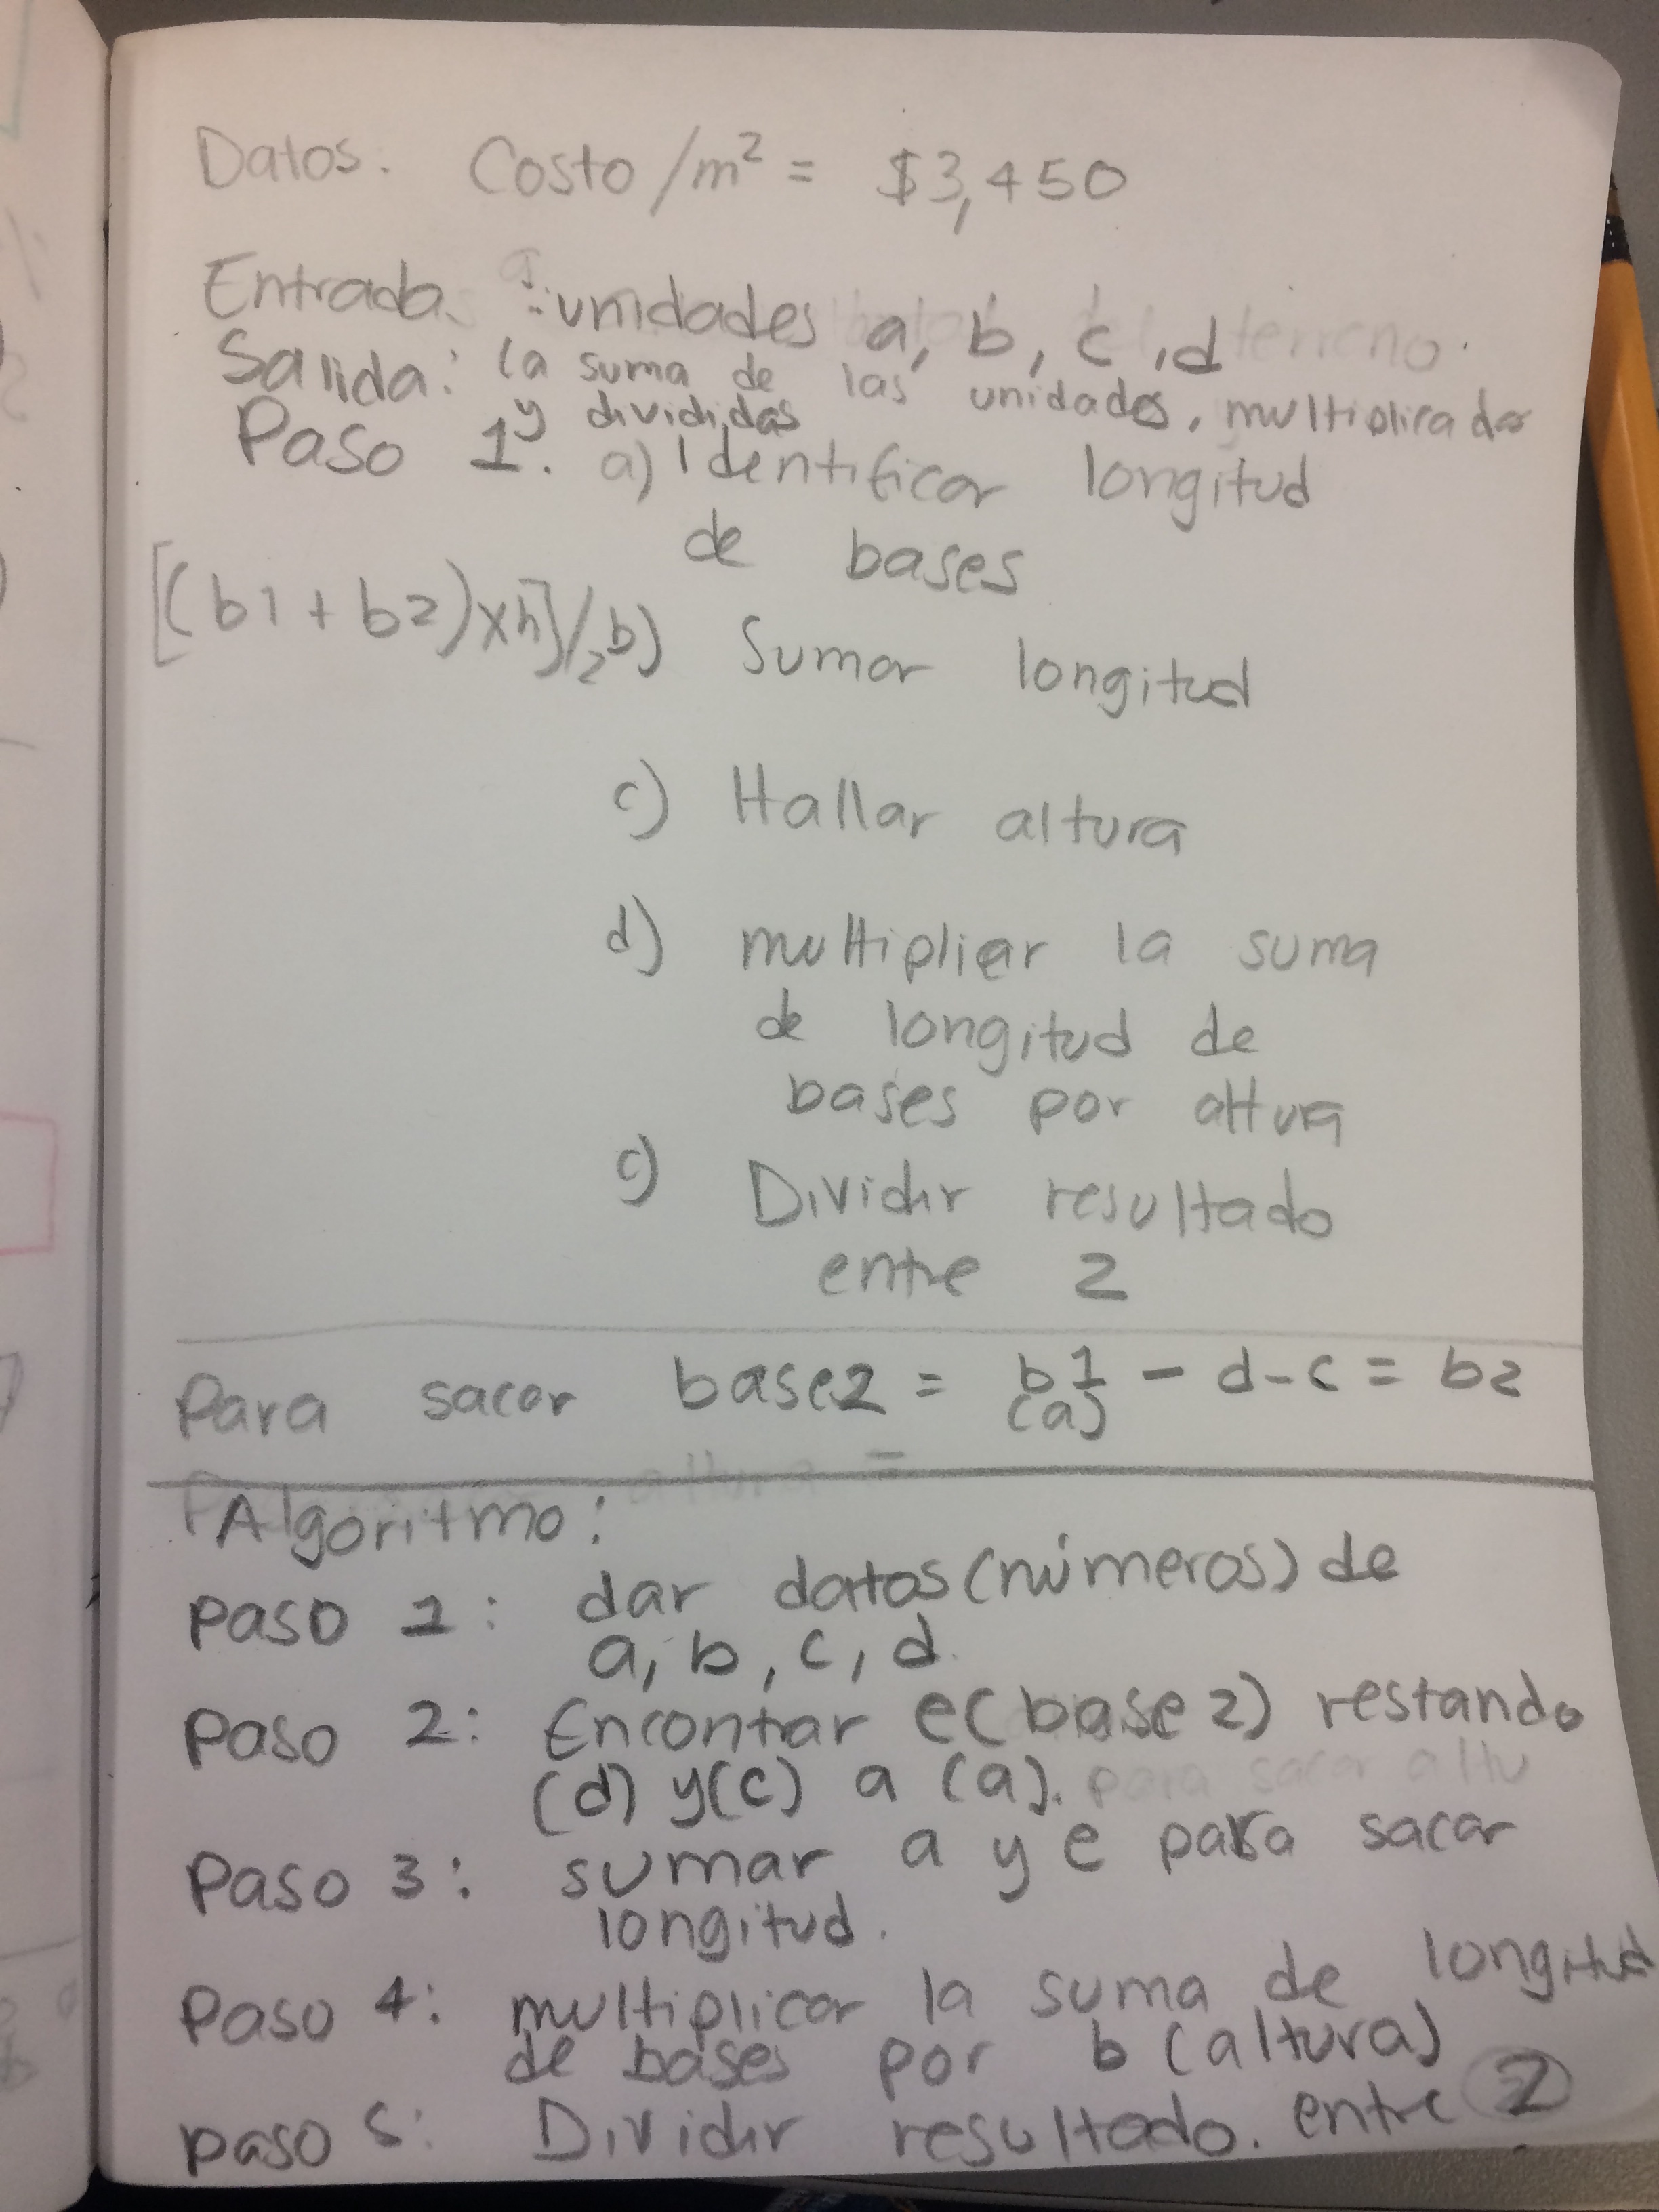 Datos. Costo/m² = $3,450
Entrada: unidades a, b, c, d terreno.
Salida: la suma de las unidades, multiplicadas
y divididas
Paso 1: a) Identificar longitud
de bases
[(b1 + b2)xh]/2 b) Sumar longitud
c) Hallar altura
d) multipliar la suma
de longitud de
bases por altura
c) Dividir resultado
entre 2
Para sacar base2 = b1 - d-c = b2
(a)
altura =
Algoritmo:
Paso 1: dar datos (números) de
a, b, c, d.
Paso 2: Encontar e(base 2) restando
(d) y(c) a (a). para sacar altu
Paso 3: sumar a y e para sacar
longitud.
Paso 4: multiplicar la suma de longitud
de bases por b (altura)
paso 5: Dividir resultado. entre 2